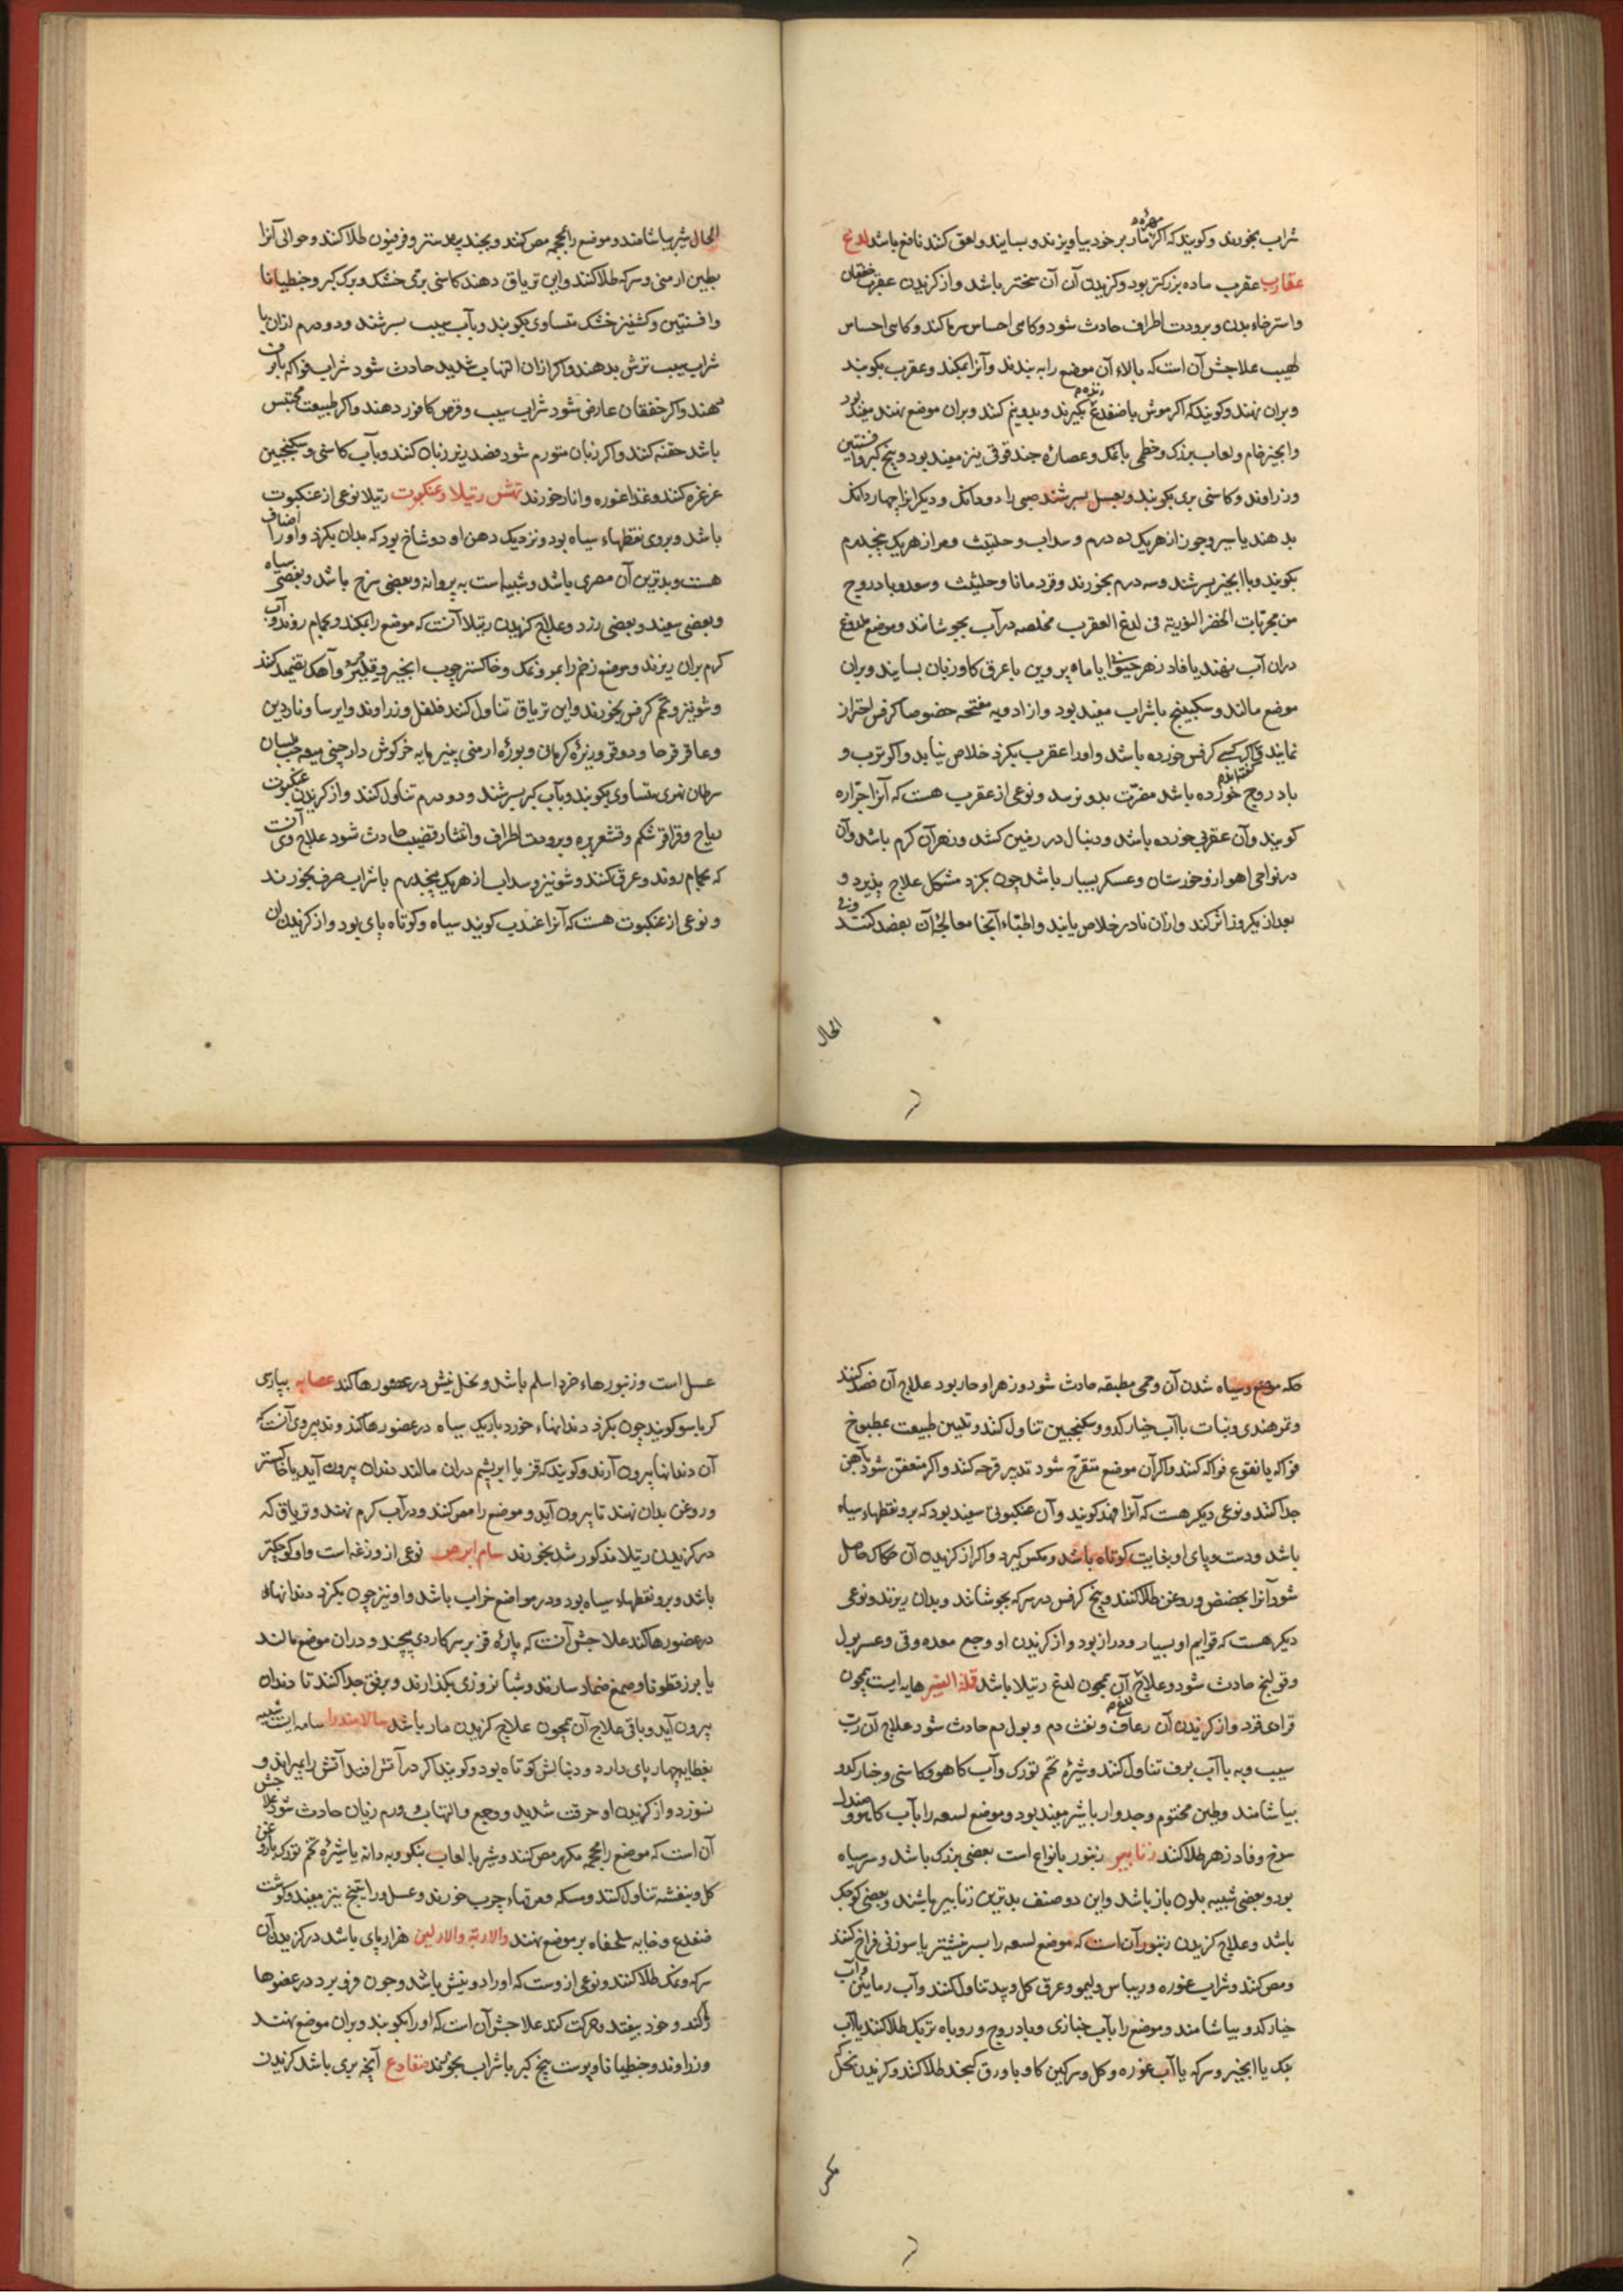 شراب بخورند و کویند که اکر مهرهٔ مار بر خود بیاویزند و بسایند و لعق کنند نافع باشد لدغ
عقارب عقرب ماده بزرکتر بود و کزیدن آن سختر باشد و از کزیدن عقرب خفقان
و استرخاء بدن و برودت اطراف حادث شود و کاهی احساس سرما کند و کاهی احساس
لهیب علاجش آن است که بالاء آن موضع را به بندند و آنرا بمکند و عقرب بکوبند
و بران نهند و کویند که اکر موش یا ضفدع زنده بکیرند و بدو نیم کنند و بران موضع نهند مفید بود
و انجیر خام و لعاب بزرک و خطمی با نمک و عصاره حندقوقی نیز مفید بود و بیخ کبر و افسنتین
و زراوند و کاسنی بری بکوبند و بعسل بسرشند صبی را دو دانک و دیکرانرا چهار دانک
بدهند یا سیر و جوز از هر یک ده درم و سداب و حلتیت و مر از هر یک پنجدرم
بکوبند و با انجیر بسرشند و سه درم بخورند و قردمانا و حلتیت و سعد و بادروج
من مجربات الحضر النوریته فی لدغ العقرب مخلصه در آب بجوشانند و موضع ملدوغ
دران آب نهند یا فادزهر حیوانی یا ماه پروین با عرق کاوزبان بسایند و بران
موضع مالند و سکبینج با شراب مفید بود و از ادویه مفتحه خصوصا کرفس احتراز
نمایند که اکر کسی کرفس خورده باشد و اورا عقرب بکزد خلاص نیابد و اکر ترب و
بادروج خورده باشد مضرت بدو نرسد و نوعی از عقرب هست که آنرا جراره
کویند و آن عقربی خورده باشد و دنبال در زمین کشد و زهر آن کرم باشد و آن
در نواحی اهواز و خوزستان و عسکر بسیار باشد چون بکزد مشکل علاج پذیرد و
بعد از یکروز اثر کند و ازان نادر خلاص یابند و اطباء آنجا معالجهٔ آن بفصد کنند
الحال
الحال شیر بیاشامند و موضع را بمحجمه مص کنند و بجند بیدستر و فرفیون طلا کنند و حوالی آنرا
بطین ارمنی و سرکه طلا کنند و این تریاق دهند کاسنی بری خشک و برک کبر و جنطیانا
و افسنتین و کشنیز خشک متساوی بکوبند و بآب سیب بسرشند و دو درم ازان با
شراب سیب ترش بدهند و اکر ازان التهاب شدید حادث شود شراب فواکه با برف
دهند و اکر خفقان عارض شود شراب سیب و قرص کافور دهند و اکر طبیعت محتبس
باشد حقنه کنند و اکر زبان متورم شود فصد زیر زبان کنند و بآب کاسنی و سکنجبین
غرغره کنند و غذا غوره و انار خورند نهش رتیلا و عنکبوت رتیلا نوعی از عنکبوت
باشد و بروی نقطهاء سیاه بود و نزدیک دهن او دو شاخ بود که بدان بکزد و اورا اصناف
هست و بدترین آن مصری باشد و شبیه است به پروانه و بعضی سرخ باشد و بعضی سیاه
و بعضی سفید و بعضی زرد و علاج کزیدن رتیلا آنست که موضع را بمکند و بحمام روند و آب
کرم بران ریزند و موضع زخم را بمر و نمک و خاکستر چوب انجیر و آهک تضمید کنند
و شونیز و تخم کرفس بخورند و این تریاق تناول کنند فلفل و زراوند و ایرسا و ناردین
و عاقرقرحا و دوقو و زیرهٔ کرمانی و بورهٔ ارمنی پنیر مایه خرکوش دارچینی میعه حب بلسان
سرطان نهری متساوی بکوبند و بآب کبر بسرشند و دو درم تناول کنند و از کزیدن عنکبوت
ریاح و قراقر شکم و قشعریره و برودت اطراف و انتشار قضیب حادث شود علاج وی آنست
که بحمام روند و عرق کنند و شونیز و سداب از هر یک پنجدرم با شراب صرف بخورند
و نوعی از عنکبوت هست که آنرا عندب کویند سیاه و کوتاه پای بود و از کزیدن آن
حکه موضع و سیاه شدن آن و حمی مطبقه حادث شود و زهر او حار بود علاج آن فصد کنند
و تمر هندی و نبات با آب خیار کدو و سکنجبین تناول کنند و تلیین طبیعت بمطبوخ
فواکه یا نقوع فواکه کنند و اکر آن موضع متقرح شود تدبیر قرحه کنند و اکر متعفن شود بآهن
جدا کنند و نوعی دیکر هست که آنرا فهد کویند و آن عنکبوتی سفید بود که برو نقطهاء سیاه
باشد و دست و پای او بغایت کوتاه باشد و مکس کیرد و اکر از کزیدن آن حکاک حاصل
شود آنرا بحضض و روغن طلا کنند و بیخ کرفس در سرکه بجوشانند و بدان ریزند و نوعی
دیکر هست که قوایم او بسیار و دراز بود و از کزیدن او وجع معده و قی و عسر بول
و قولنج حادث شود و علاج آن همچون لدغ رتیلا باشد قملة النسر هامه ایست همچون
قرادی قرد و از کزیدن آن رعاف و نفث دم و بول دم حادث شود علاج آن رب
سیب و به با آب برف تناول کنند و شیرهٔ تخم تورک و آب کاهو و کاسنی و خیار کدو
بیاشامند و طین مختوم و جدوار با شیر مفید بود و موضع لسعه را بآب کاهو و صندل
سرخ و فادزهر طلا کنند زنابیر زنبور بانواع است بعضی بزرک باشد و سر سیاه
بود و بعضی شبیه بلون باز باشد و این دو صنف بدترین زنابیر باشند و بعضی کوچک
باشد و علاج کزیدن زنبور آن است که موضع لسعه را بسر نیشتر یا سوزنی فراخ کنند
و مص کنند و شراب غوره و ریباس و لیمو و عرق کل و بید تناول کنند و آب رمانین و آب
خیار کدو بیاشامند و موضع را بآب خبازی و بادروج و روباه تربک طلا کنند یا آب
نمک یا انجیر و سرکه یا آب غوره و کل و سرکین کاو با ورق کنجد طلا کنند و کزیدن نحل
عسل است و زنبورهاء خرد اسلم باشد و نحل نیش در عضو رها کند عصایه بپارسی
کرباسو کویند چون بکزد دندانهاء خورد باریک سیاه در عضو رها کند و تدبیر وی آنست که
آن دندانها بیرون آرند و کویند که قز یا ابریشم دران مالند دندان بیرون آید یا خاکستر
و روغن بدان نهند تا بیرون آید و موضع را مص کنند و در آب کرم نهند و تریاق که
در کزیدن رتیلا مذکور شد بخورند سام ابرص نوعی از وزغه است و او کوچکتر
باشد و برو نقطهاء سیاه بود و در مواضع خراب باشد و او نیز چون بکزد دندانهاء
در عضو رها کند علاجش آنست که پارهٔ قز بر سر کاردی پیچند و دران موضع مالند
یا بزرقطونا و صمغ ضماد سازند و شبانروزی بکذارند و برفق جدا کنند تا دندان
بیرون آید و باقی علاج آن همچون علاج کزیدن مار باشد سالامندرا سامه ایست شبیه
بغطایه چهار پای دارد و دنبالش کوتاه بود و کویند اکر در آتش افتد آتش را بمیراند و
نسوزد و از کزیدن او حرقت شدید و وجع و التهاب و ورم زبان حادث شود علاجش
آن است که موضع را بمحجمه مکرر مص کنند و شیر با لعاب بنکو و به دانه یا شیرهٔ تخم تورک با روغن
کل و بنفشه تناول کنند و مسکه و مرقهاء چرب خورند و عسل و راتینج نیز مفید و کوشت
ضفدع و خایه سلحفاه بر موضع نهند والارنة والارلین هزارپای باشد در کزیدن آن
سرکه و نمک طلا کنند و نوعی ازوست که اورا دو نیش باشد و چون فرو برد در عضو رها
کند و خود بیفتد و حرکت کند علاجش آن است که اورا بکوبند و بران موضع نهند
و زراوند و جنطیانا و پوست بیخ کبر با شراب بخورند ضفادع آنچه بری باشد کزیدن